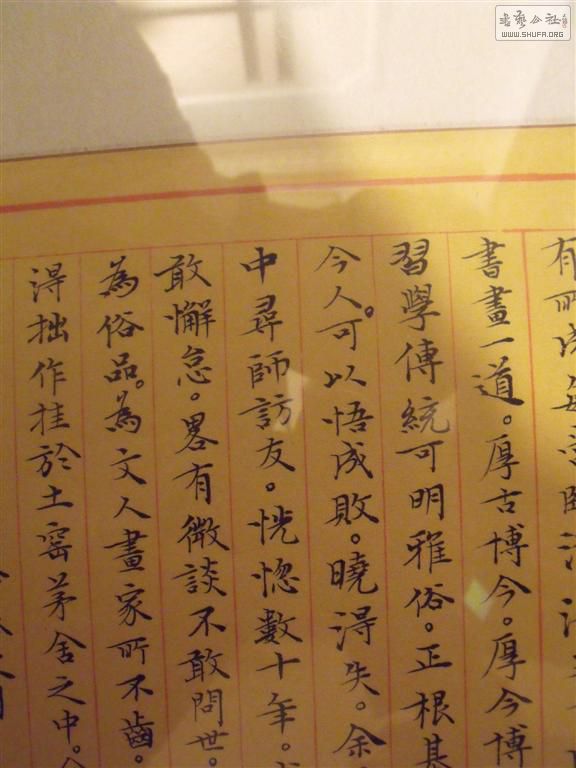 書藝公社
WWW.SHUFA.ORG
有所成
書畫一道。厚古博今。厚今博
習學傳統可明雅俗。正根基
今人。可以悟成敗。曉淂失。余
中尋師訪友。恍惚數十年。
敢懈怠。畧有微談不敢問世。
為俗品。為文人畫家所不齒。
淂拙作挂於土窑茅舍之中。